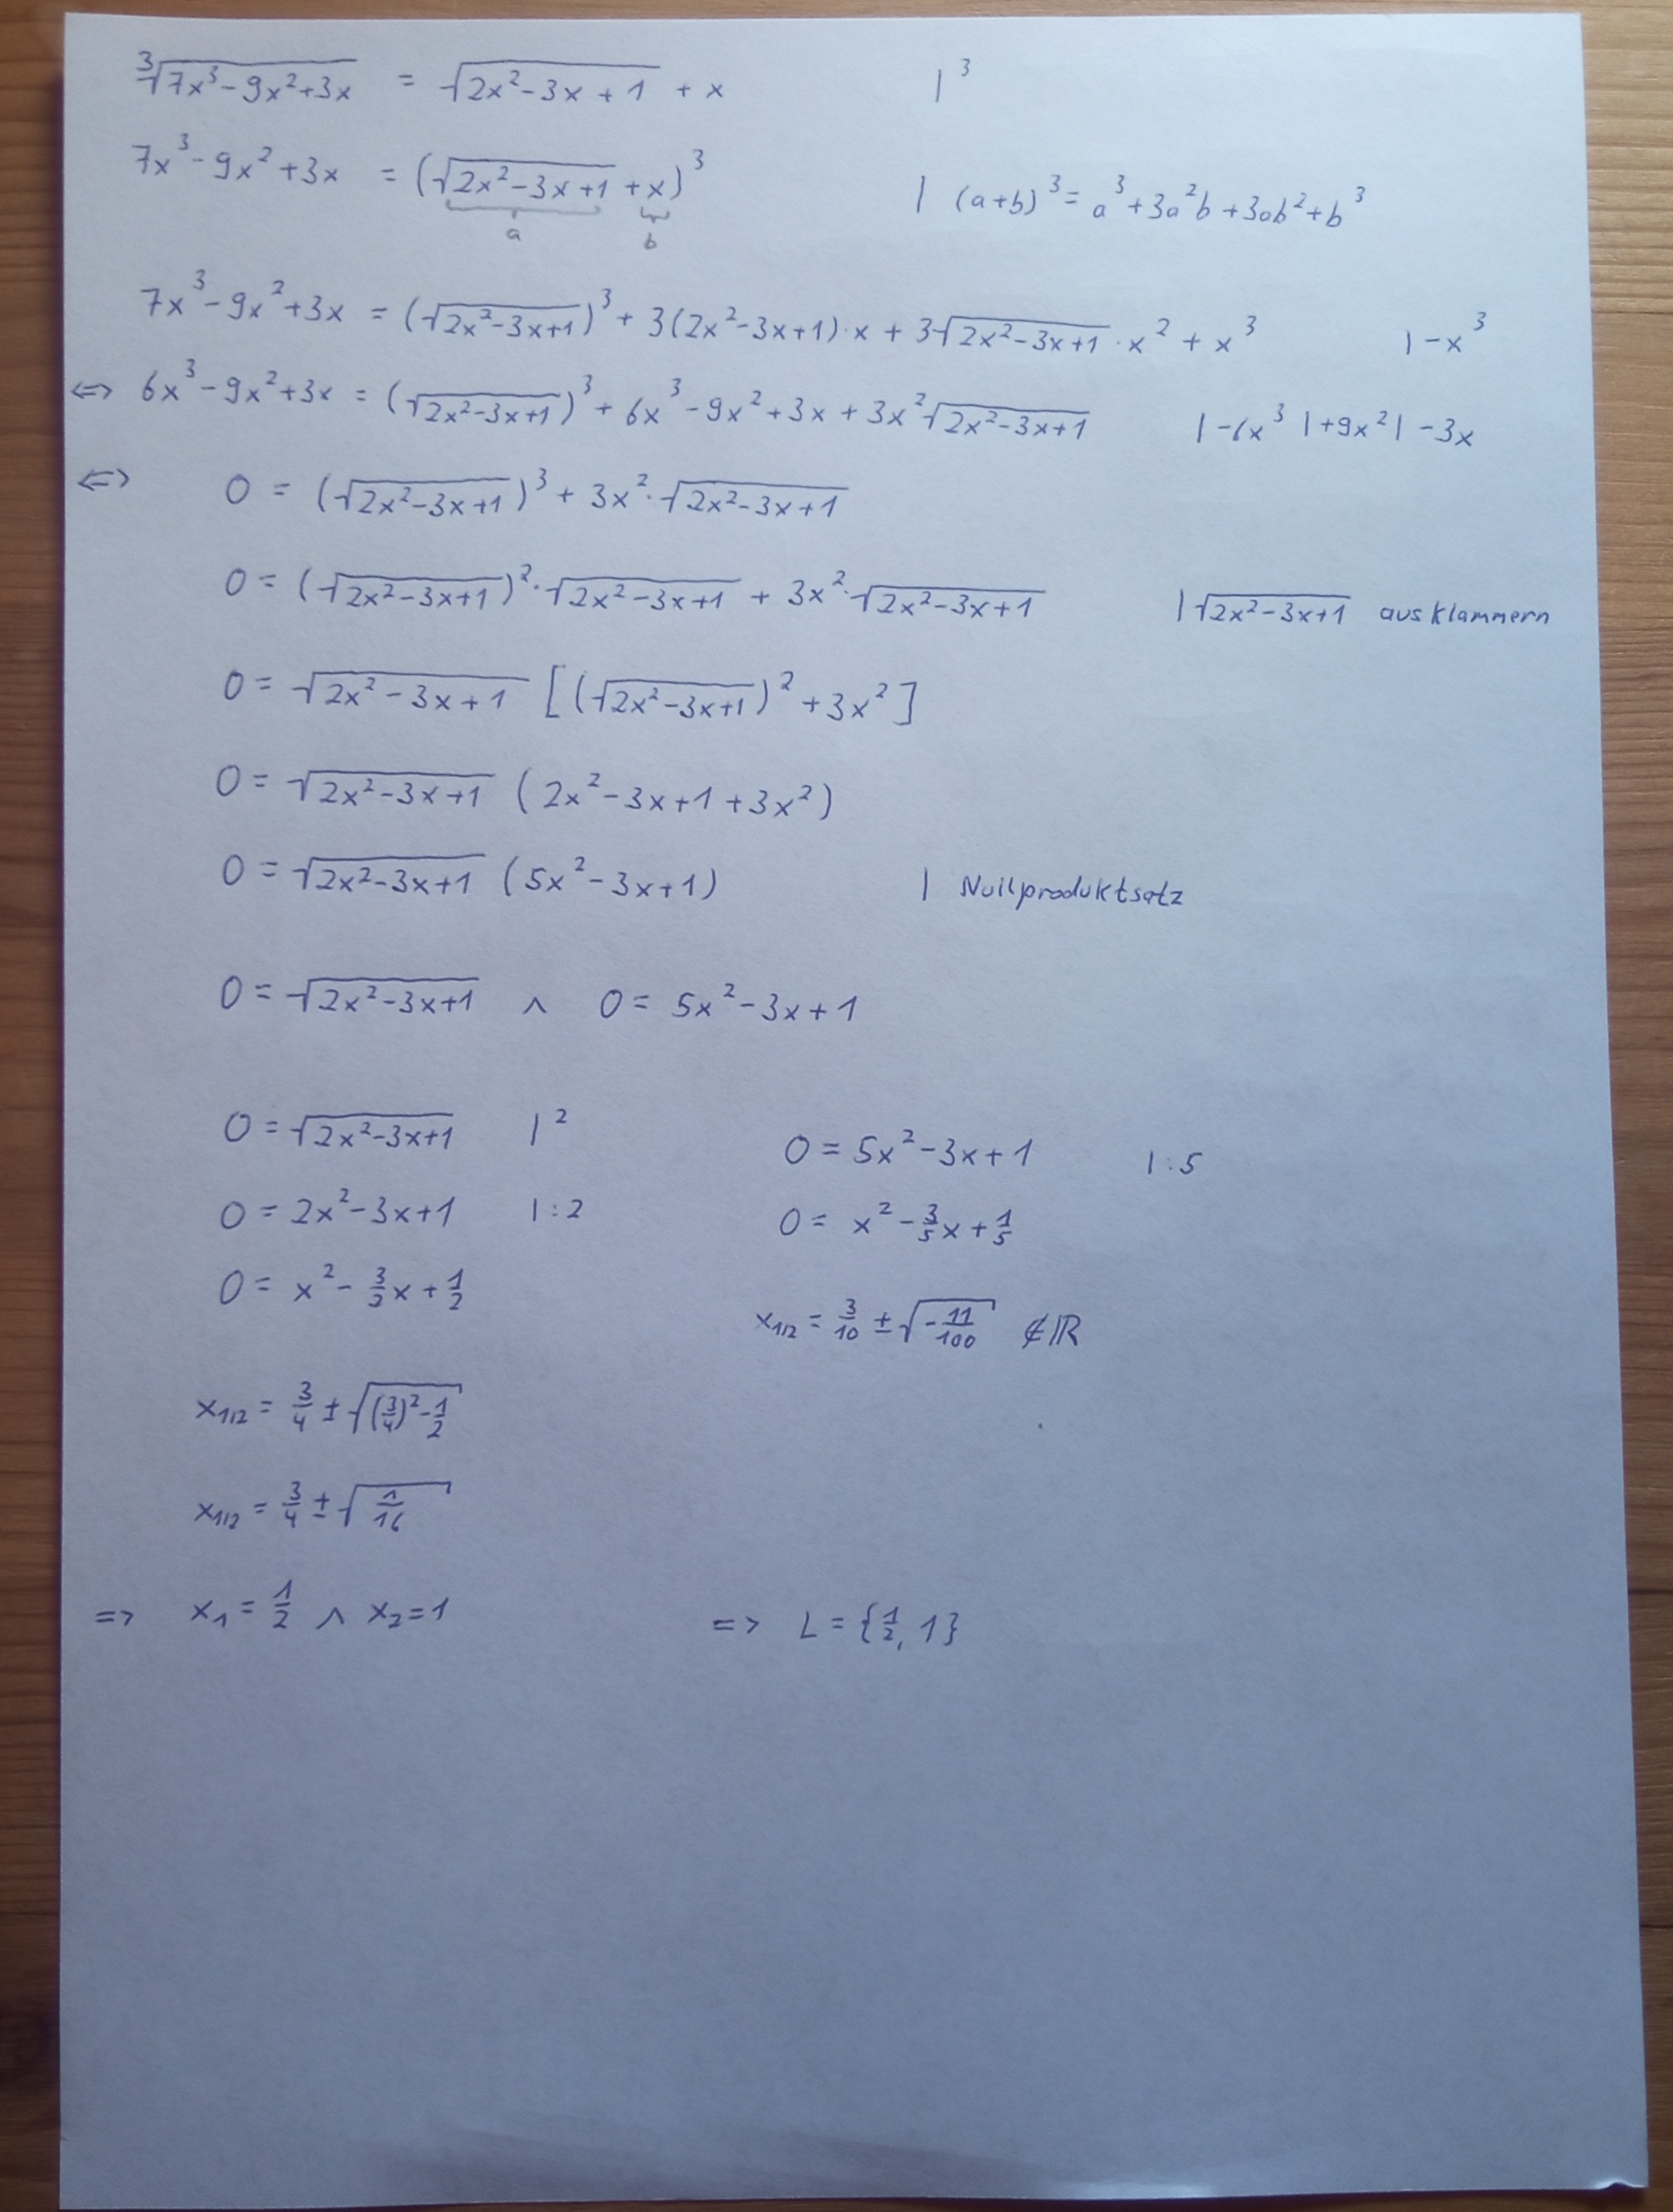 ∛(7x³-9x²+3x) = √(2x²-3x+1) + x | ³
7x³-9x²+3x = (√(2x²-3x+1) + x)³ | (a+b)³ = a³+3a²b+3ab²+b³
a b
7x³-9x²+3x = (√(2x²-3x+1))³ + 3(2x²-3x+1)·x + 3√(2x²-3x+1)·x² + x³ | -x³
<=> 6x³-9x²+3x = (√(2x²-3x+1))³ + 6x³-9x²+3x + 3x²√(2x²-3x+1) | -6x³ | +9x² | -3x
<=> 0 = (√(2x²-3x+1))³ + 3x²·√(2x²-3x+1)
0 = (√(2x²-3x+1))²·√(2x²-3x+1) + 3x²·√(2x²-3x+1) | √(2x²-3x+1) ausklammern
0 = √(2x²-3x+1) [(√(2x²-3x+1))² + 3x²]
0 = √(2x²-3x+1) (2x²-3x+1+3x²)
0 = √(2x²-3x+1) (5x²-3x+1) | Nullproduktsatz
0 = √(2x²-3x+1) ∧ 0 = 5x²-3x+1
0 = √(2x²-3x+1) | ² 0 = 5x²-3x+1 | :5
0 = 2x²-3x+1 | :2 0 = x² - 3/5x + 1/5
0 = x² - 3/2x + 1/2
x1/2 = 3/10 ± √(-11/100) ∉ ℝ
x1/2 = 3/4 ± √((3/4)² - 1/2)
x1/2 = 3/4 ± √(1/16)
=> x₁ = 1/2 ∧ x₂ = 1 => L = {1/2, 1}